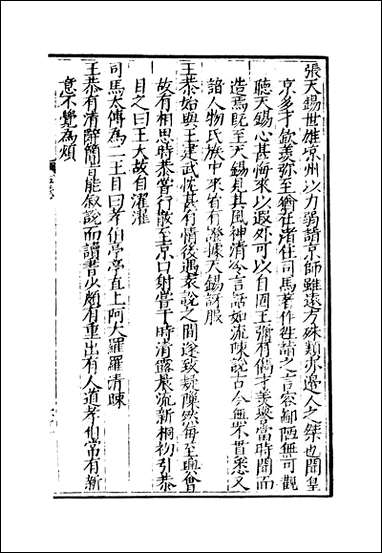 張天錫世雄涼州以力弱詣京師雖遠方殊類亦邊人之桀也聞皇
京多才欽羨彌至猶在渚住司馬著作往詣之言容鄙陋無可觀
聽天錫心甚悔來以遐外可以自固王彌有儁才美譽當時聞而
造焉既至天錫見其風神清令言話如流陳說古今無不貫悉又
諳人物氏族中來皆有證據天錫訝服
王恭始與王建武甚有情後遇袁恱之間遂致疑隙然每至興會
故有相思時恭嘗行散至京口射堂于時清露晨流新桐初引恭
目之曰王大故自濯濯
司馬太傅為二王目曰孝伯亭亭直上阿大羅羅清疎
王恭有清辭簡旨能敘說而讀書少頗有重出有人道孝伯常有新
意不覺為煩